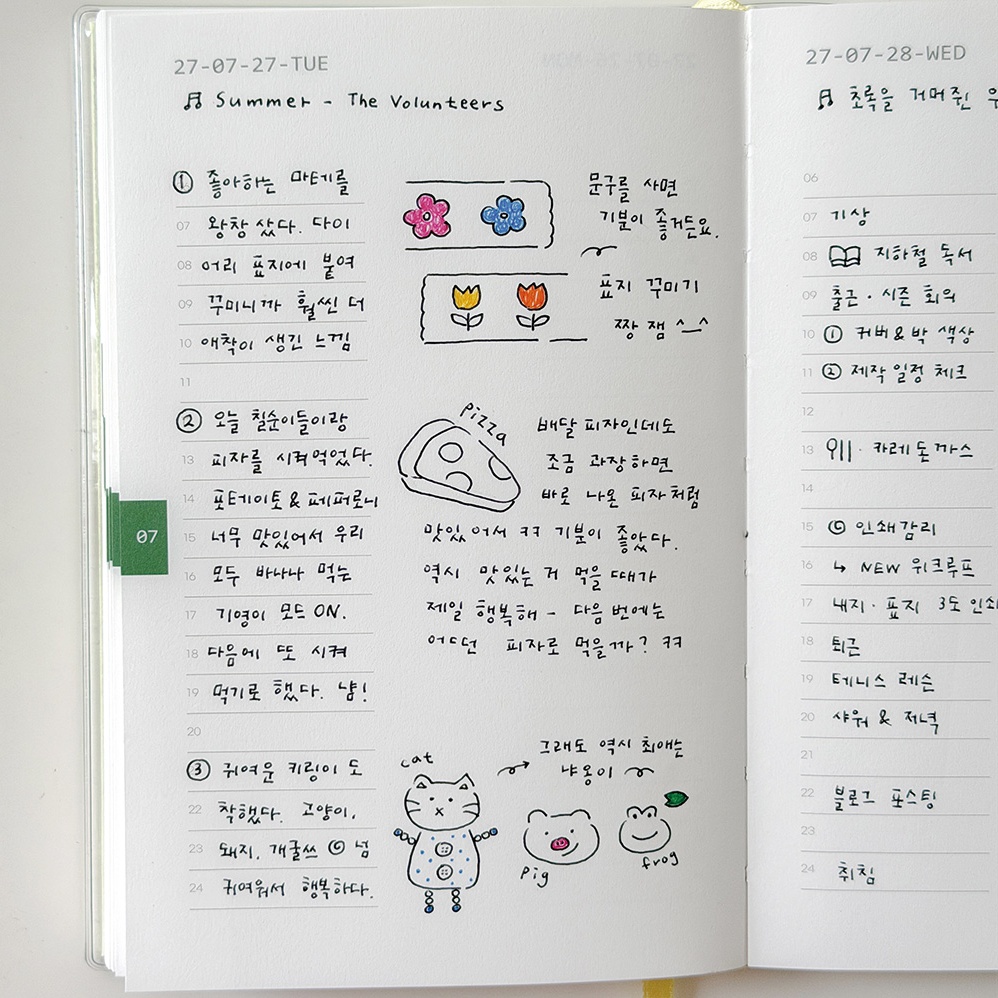 27-07-27-TUE
Summer - The Volunteers
① 좋아하는 마테를
07 왕창 샀다. 다이
08 어리 표지에 붙여
09 꾸미니까 훨씬 더
10 애착이 생긴 느낌
11
문구를 사면
기분이 좋거든요.
표지 꾸미기
짱 잼 ^_^
② 오늘 칠순이들이랑
13 피자를 시켜먹었다.
14 포테이토 & 페퍼로니
15 너무 맛있어서 우리
16 모두 바나나 먹는
17 기영이 모드 ON.
18 다음에 또 시켜
19 먹기로 했다. 냠!
20
pizza
배달 피자인데도
조금 과장하면
바로 나온 피자처럼
맛있어서 ㅋㅋ 기분이 좋았다.
역시 맛있는 거 먹을 때가
제일 행복해 - 다음 번에는
어떤 피자로 먹을까? ㅋㅋ
③ 귀여운 키링이 도
22 착했다. 고양이,
23 돼지, 개굴쓰 넘
24 귀여워서 행복하다.
cat
그래도 역시 최애는
냐옹이
pig
frog
07
27-07-28-WED
초록을 거머쥔
06
07 기상
08 지하철 독서
09 출근 · 시즌 회의
10 ① 커버 & 박 색상
11 ② 제작 일정 체크
12
13 · 카레 돈까스
14
15 인쇄감리
16 ↳ NEW 워크루프
17 내지 · 표지 3도 인쇄
18 퇴근
19 테니스 레슨
20 샤워 & 저녁
21
22 블로그 포스팅
23
24 취침